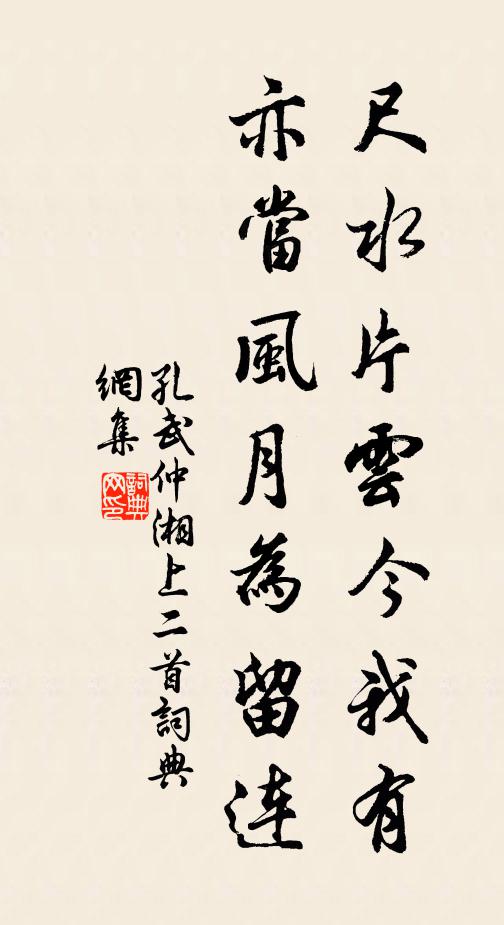 尺水片雲今我有
亦當風月為留连
孔武仲湘上二首詞典
網集
詞典
网印